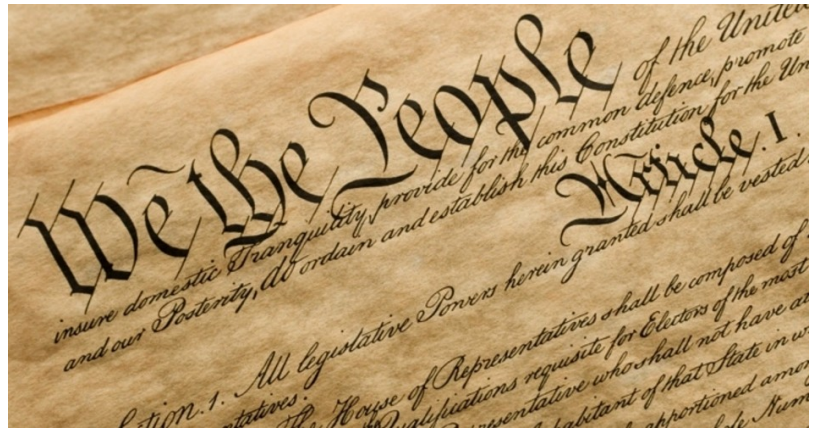 We the People of the United
insure domestic Tranquility, provide for the common defence, promote
and our Posterity, do ordain and establish this Constitution for the Un
Article. I.
ction. 1. All legislative Powers herein granted shall be vested
ntatives.
The House of Representatives shall be composed of
ualifications requisite for Electors of the most
resentative who shall not have at
habitant of that State in w
apportioned amon
ole Num